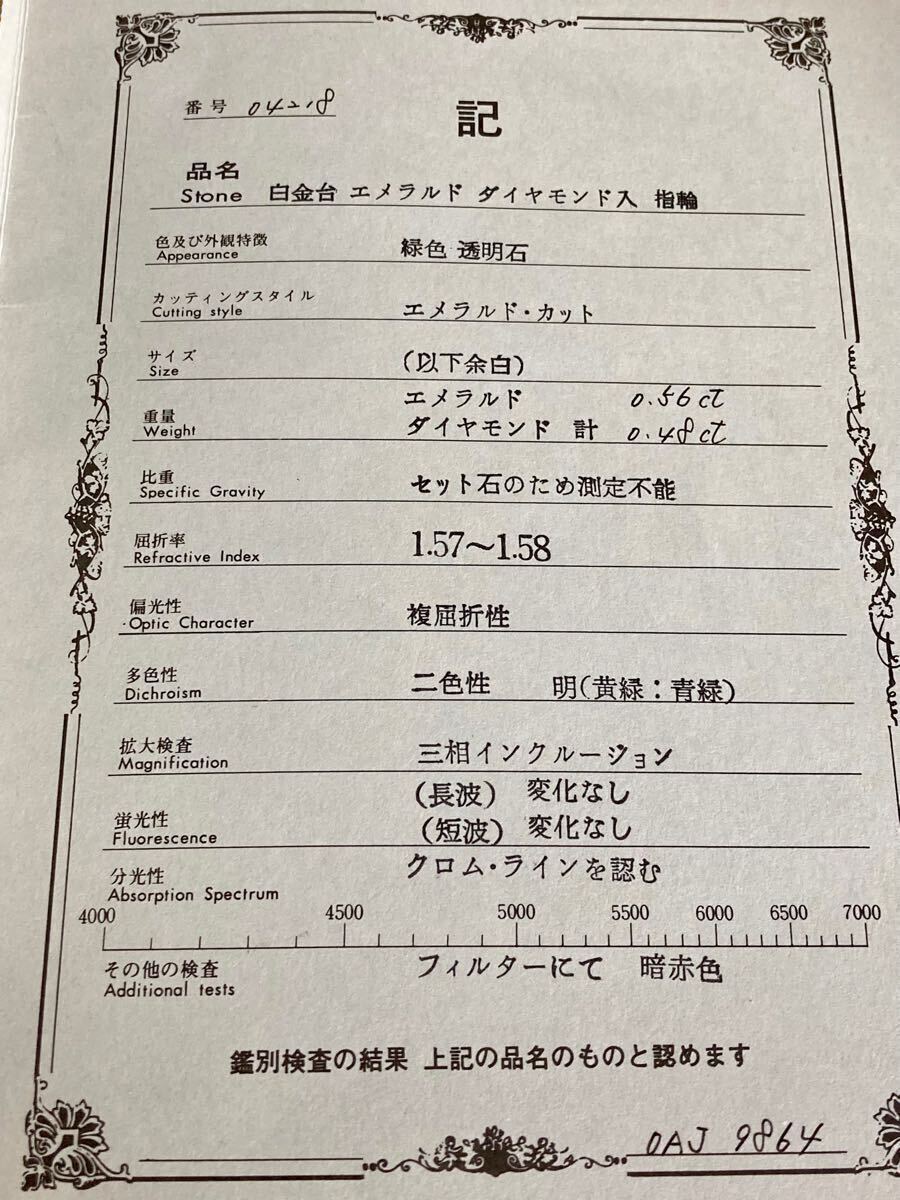 番号 04218
記
品名
Stone 白金台 エメラルド ダイヤモンド入 指輪
色及び外観特徴
Appearance 緑色 透明石
カッティングスタイル
Cutting style エメラルド・カット
サイズ
Size (以下余白)
エメラルド 0.56ct
重量
Weight ダイヤモンド 計 0.48ct
比重
Specific Gravity セット石のため測定不能
屈折率
Refractive Index 1.57〜1.58
偏光性
Optic Character 複屈折性
多色性
Dichroism 二色性 明(黄緑：青緑)
拡大検査
Magnification 三相インクルージョン
(長波) 変化なし
蛍光性
Fluorescence (短波) 変化なし
分光性 クロム・ラインを認む
Absorption Spectrum
4000 4500 5000 5500 6000 6500 7000
その他の検査 フィルターにて 暗赤色
Additional tests
鑑別検査の結果 上記の品名のものと認めます
OAJ 9864